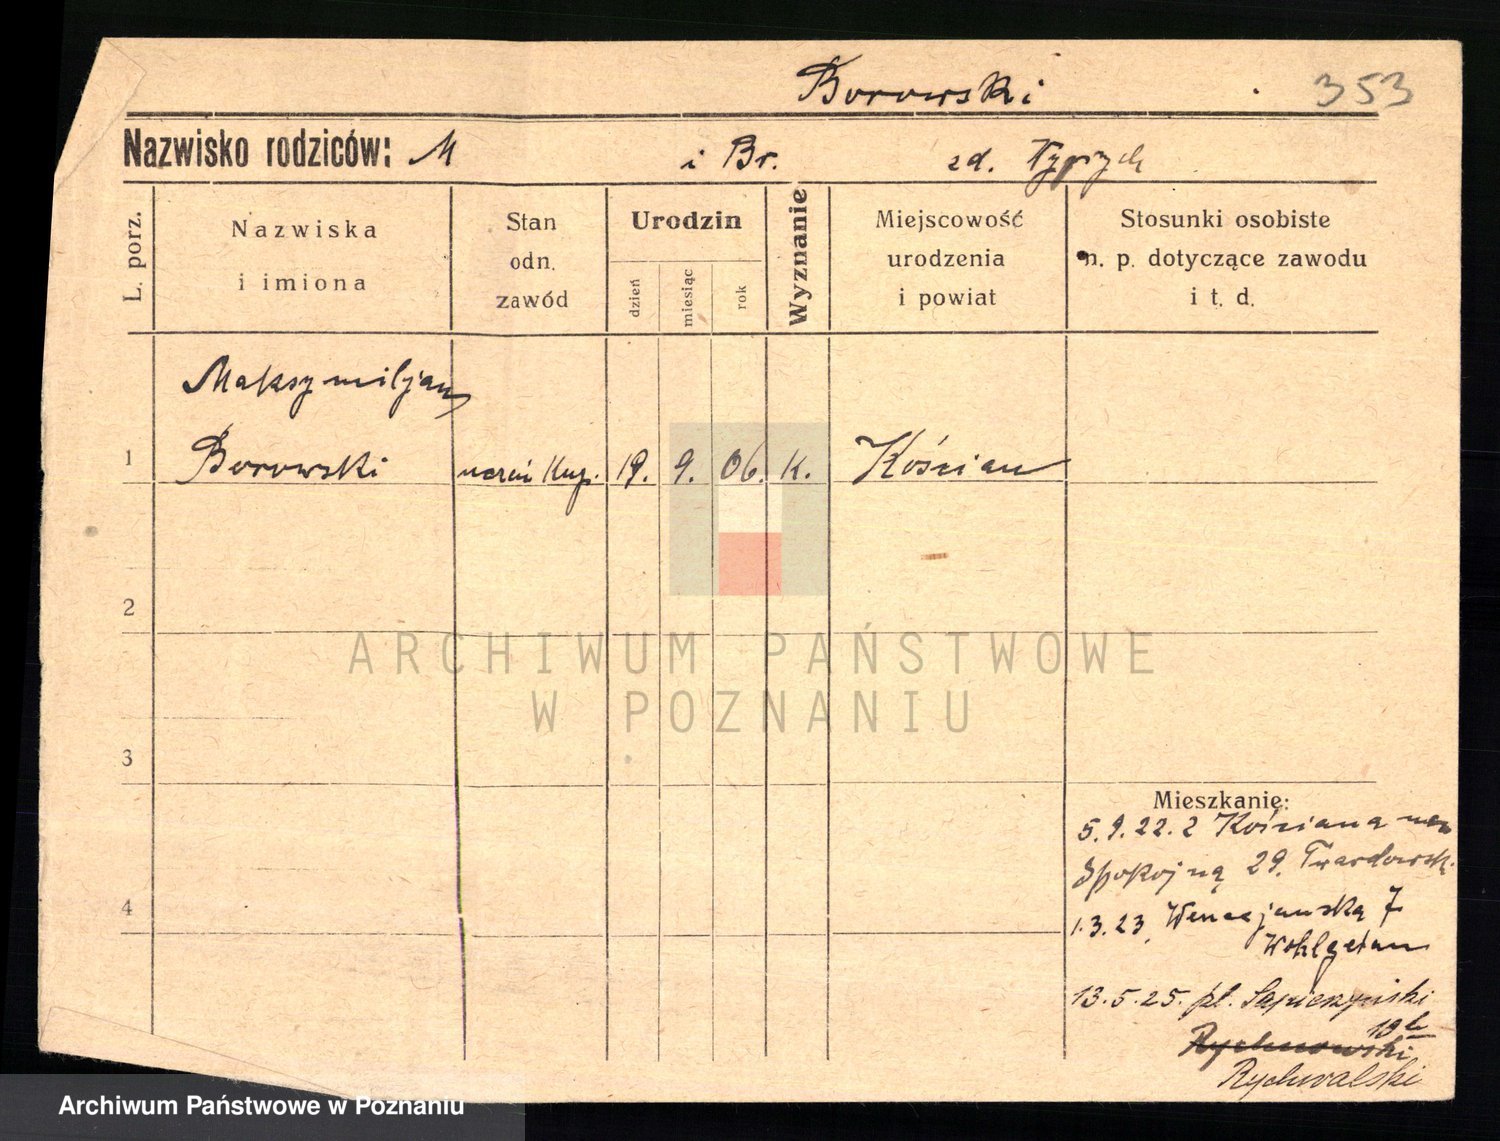 Borowski 353
Nazwisko rodziców: M i Br. zd.
L. porz.
Nazwiska
i imiona
Stan
odn.
zawód
Urodzin
dzień
miesiąc
rok
Wyznanie
Miejscowość
urodzenia
i powiat
Stosunki osobiste
n. p. dotyczące zawodu
i t. d.
Maksymiljan
1 Borowski uczeń kup. 19. 9. 06. K. Kościan
2
ARCHIWUM PAŃSTWOWE
W POZNANIU
3
Mieszkanie:
5.9.22. z Kościana na
Spokojną 29. Twardowski
4
1.3.23. Wenecjańska 7
Wohlgetan
13.5.25. pl. Sapieżyński
10b
Rychnowski
Rychwalski
Archiwum Państwowe w Poznaniu